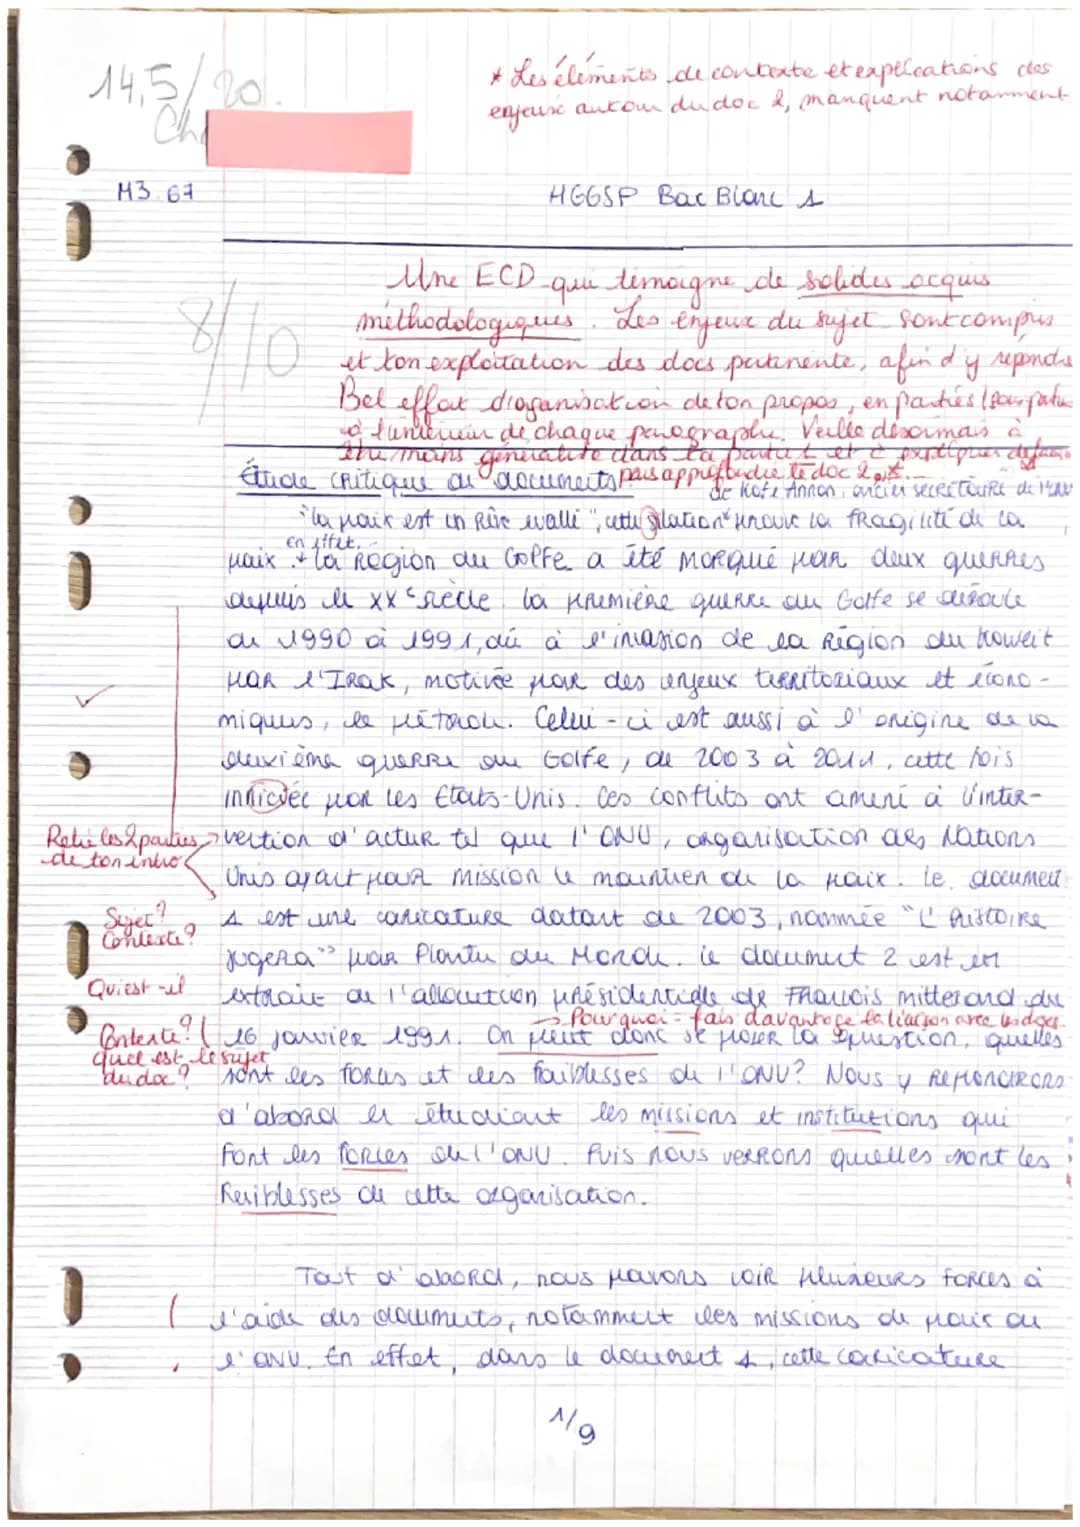 14,5/20.
* Les éléments de contexte et explications des
enjeux autour du doc 2, manquent notamment
M3.67
HGGSP Bac Blanc 1
8/10
Une ECD qui témoigne de solides acquis
méthodologiques. Les enjeux du sujet sont compris
et ton exploitation des docs pertinente, afin d'y répondre
Bel effort d'organisation de ton propos, en parties / sous parties
à l'intérieur de chaque paragraphe. Veille désormais à
être moins généraliste dans ta partie 1 et à expliquer de façon
plus approfondie le doc 2. *
Étude critique de documents
de Kofi Annan, ancien secrétaire de l'ONU
"la paix est un rêve", cette citation la fragilité de la
en effet,
paix. la Région du Golfe a été marqué par deux guerres
depuis le XXe siècle la première guerre du Golfe se déroule
de 1990 à 1991, dû à l'invasion de la Région du Koweit
par l'Irak, motivée par des enjeux territoriaux et écono-
miques, le pétrole. Celui-ci est aussi à l'origine de la
deuxième guerre du Golfe, de 2003 à 2011, cette fois
par les Etats-Unis. Ces conflits ont amené à l'inter-
Relie les 2 parties
de ton intro
vention d'acteur tel que l'ONU, organisation des Nations
Unis ayant pour mission le maintien de la paix. Le document
Sujet?
Contexte?
1 est une caricature datant de 2003, nommée "L'histoire
jugera" par Plantu du Monde. le document 2 est un
Qui est-il
extrait de l'allocution présidentielle de François mitterand du
→ Pourquoi = fais davantage la liaison avec les docs
Contexte?
Quel est le sujet
du doc?
16 janvier 1991. On peut donc se poser la question, quelles
sont les forces et les faiblesses de l'ONU? Nous y Repondrons
d'abord en étudiant les missions et institutions qui
font les forces de l'ONU. Puis nous verrons quelles sont les
faiblesses de cette organisation.
Tout d'abord, nous pouvons voir plusieurs forces à
l'aide des documents, notamment les missions de paix de
l'ONU. En effet, dans le document 1, cette caricature
1/9